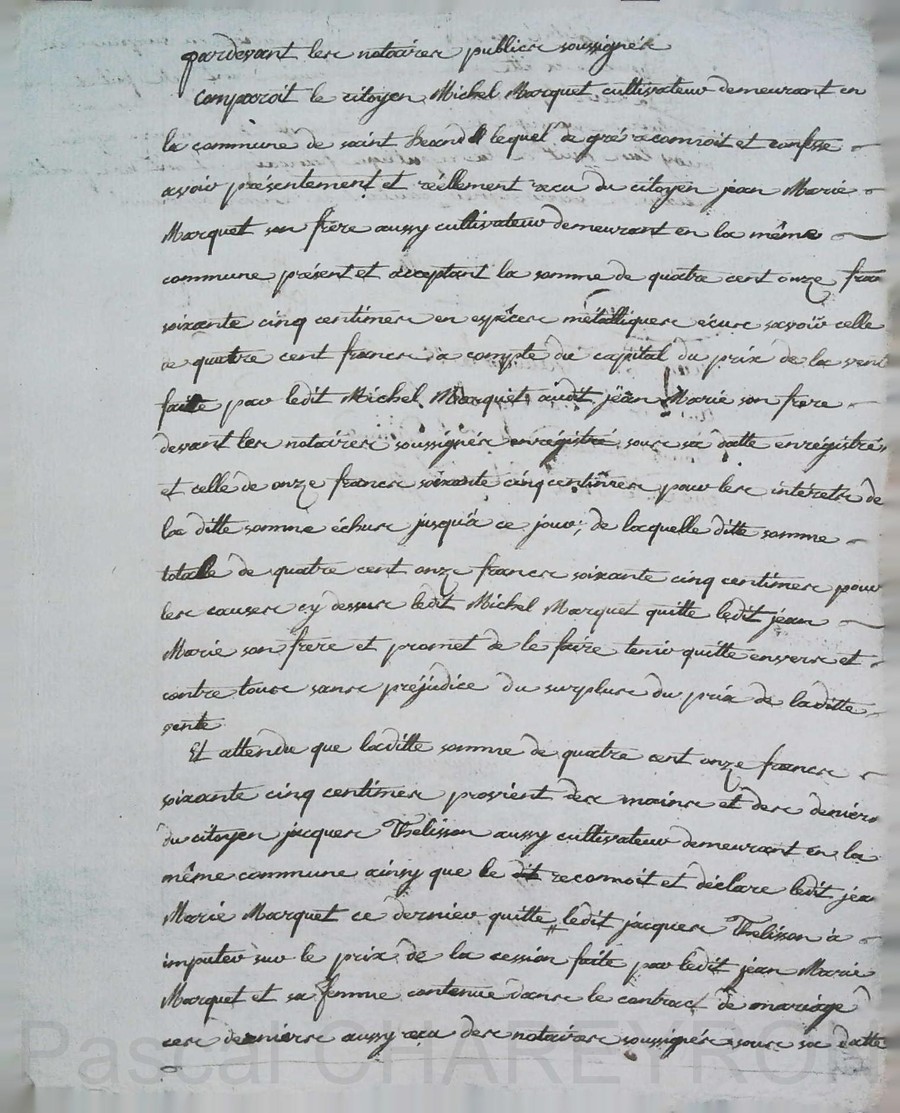 pardevant les notaires publics soussignés
Comparoit le citoyen Michel Marquet cultivateur demeurant en
la commune de saint lequel de gré reconnoit et confesse
avoir présentement et réellement recu du citoyen jean Marie
Marquet son frère aussy cultivateur demeurant en la même
commune présent et acceptant la somme de quatre cent onze fran
soixante cinq centimes en espéces métalliques écus savoir celle
de quattre cent francs a compte du capital du prix de la vent
faitte par ledit Michel Marquet audit jean Marie son frere
devant les notaires soussignés enregistré sous sa datte enregistrés
et celle de onze francs soixante cinq centimes pour les intérets de
la ditte somme échus jusqu'à ce jour, de laquelle ditte somme
totalle de quatre cent onze francs soixante cinq centimes pour
les causes cy dessus ledit Michel Marquet quitte ledit jean
Marie son frere et promet de le faire tenir quitte envers et
contre tous sans préjudice du surplus du prix de laditte
vente
Et attendu que laditte somme de quatre cent onze francs
soixante cinq centimes provient des mains et des deniers
du citoyen jacques Thelisson aussy cultivateur demeurant en la
même commune ainsy que le dit reconnoit et déclare ledit jea
Marie Marquet ce dernier quitte ledit jacques Thelisson à
imputer sur le prix de la cession faite par ledit jean Marie
Marquet et sa femme contenue dans le contract de mariage
ces derniers aussy recu des notaires soussignés sous sa datte
Pascal CHAREYRON